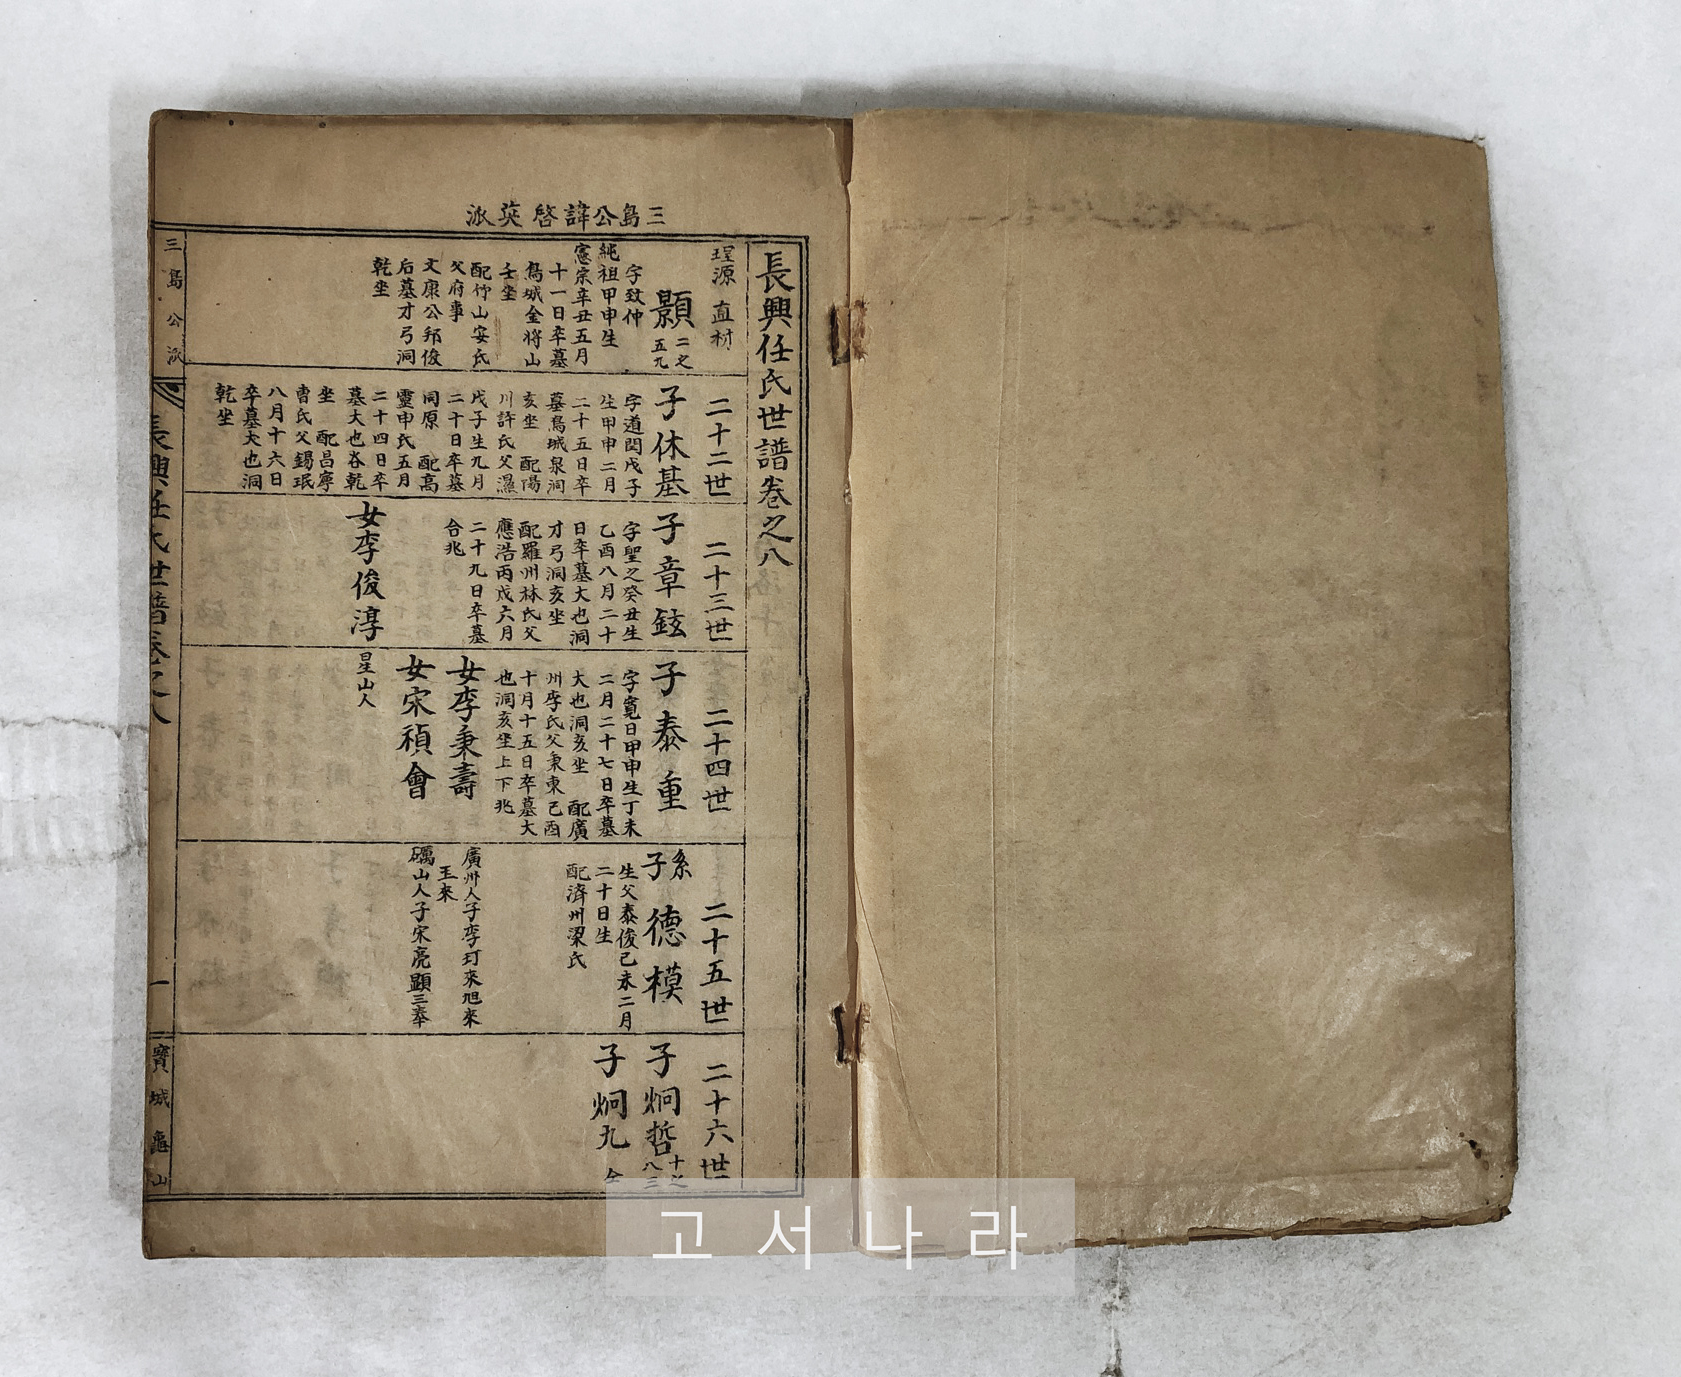 三島公諱啓英派
長興任氏世譜卷之八
珵源 直材
顥 二之五九
字致仲
純祖甲申生
憲宗辛丑五月
十一日卒墓
鳥城金將山
壬坐
配竹山安氏
父府事
文康公邦俊
后墓才弓洞
乾坐
二十二世
子休基
字道閏戊子
生甲申二月
二十五日卒
墓鳥城泉洞
亥坐 配陽
川許氏父濕
戊子生九月
二十日卒墓
同原 配高
靈申氏五月
二十四日卒
墓大也谷乾
坐 配昌寧
曺氏父錫珉
八月十六日
卒墓大也洞
乾坐
二十三世
子章鉉
字聖之癸丑生
乙酉八月二十
日卒墓大也洞
才弓洞亥坐
配羅州林氏父
應浩丙戌六月
二十九日卒墓
合兆
女李俊淳
二十四世
子泰重
字寬日甲申生丁未
二月二十七日卒墓
大也洞亥坐 配廣
州李氏父秉東己酉
十月十五日卒墓大
也洞亥坐上下兆
女李秉壽
女宋禎會
星山人
二十五世
系子德模
生父泰俊己未二月
二十日生
配濟州梁氏
廣州人子李玎來旭來
王來
礪山人子宋亮顯三奉
二十六世
子炯哲 十之八三
子炯九 仝
三島公派
長興任氏世譜卷之八
一
寶城龜山
고서나라